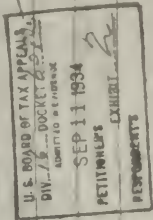 U. S. BOARD OF TAX APPEALS
DIV. 16 DOCKET
ADMITTED IN EVIDENCE
SEP 11 1934
PETITIONER'S
EXHIBIT 2
RESPONDENT'S